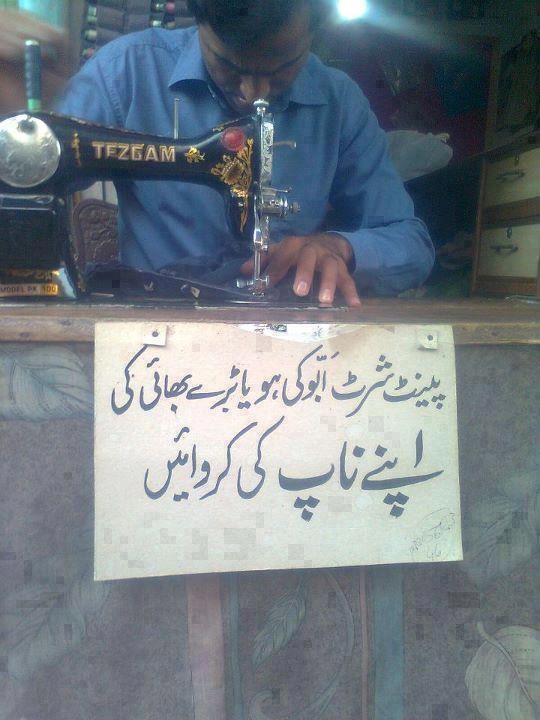 TEZGAM
MODEL PK 100
پینٹ شرٹ اَبّو کی ہو یا بڑے بھائی کی
اپنے ناپ کی کروائیں